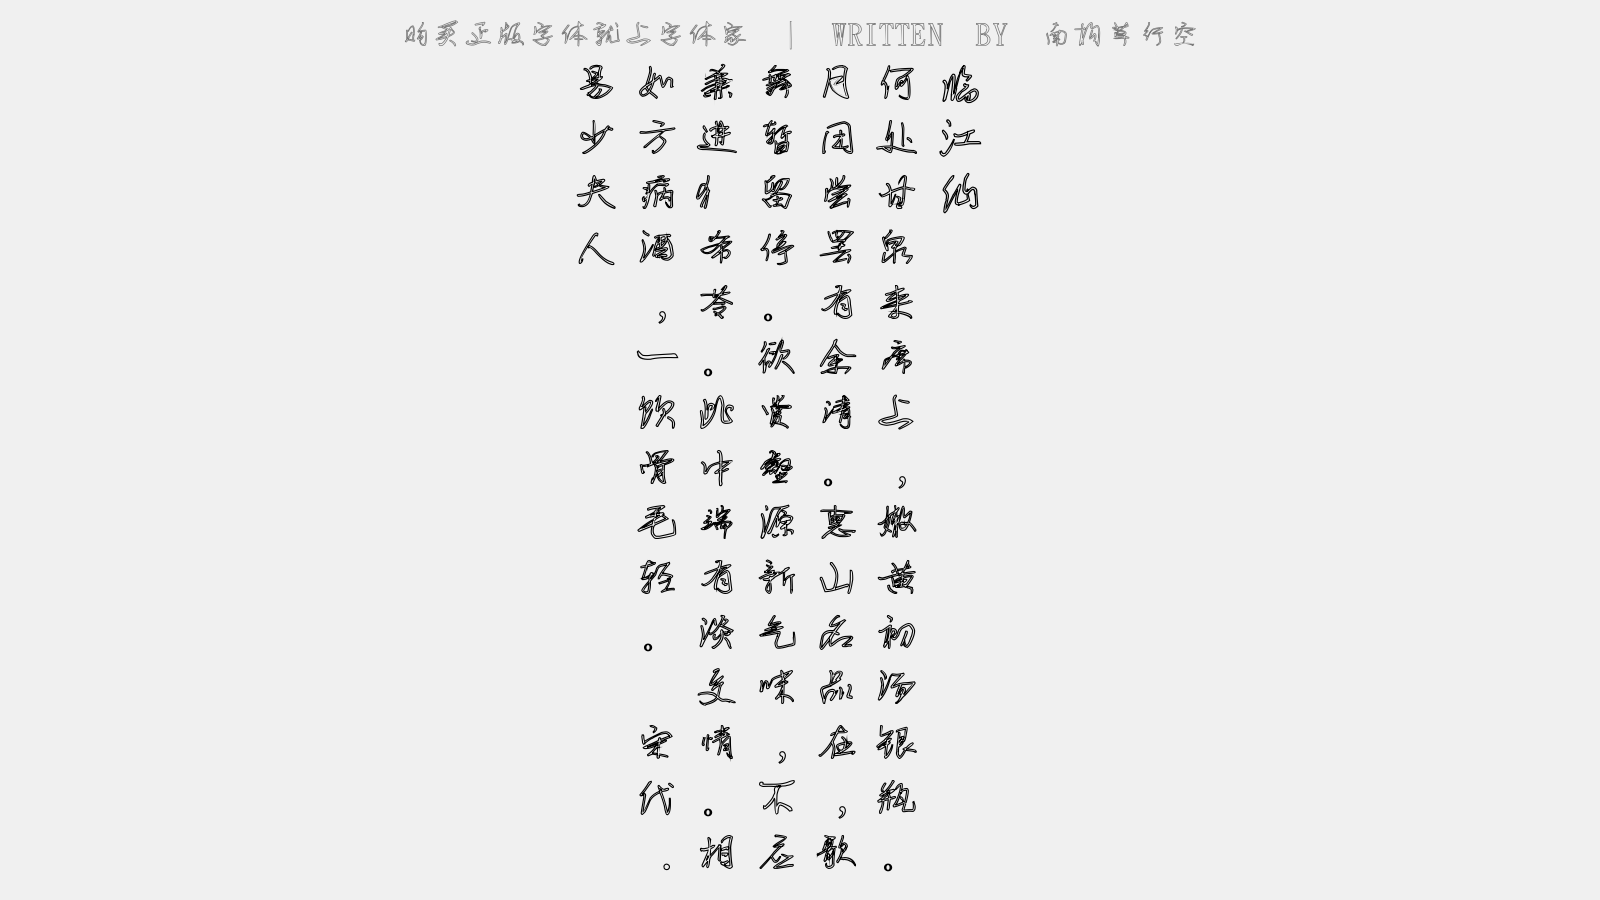 购买正版字体就上字体家 | WRITTEN BY 南构草行空
临江仙
何处甘泉来席上，嫩黄初沥银瓶。
月团尝罢有余清。惠山名品在，歌
舞暂留停。欲贤壑源新气味，不应
兼进犭希苓。此中端有淡交情。相
如方病酒，一饮骨毛轻。 宋代。
易少夫人